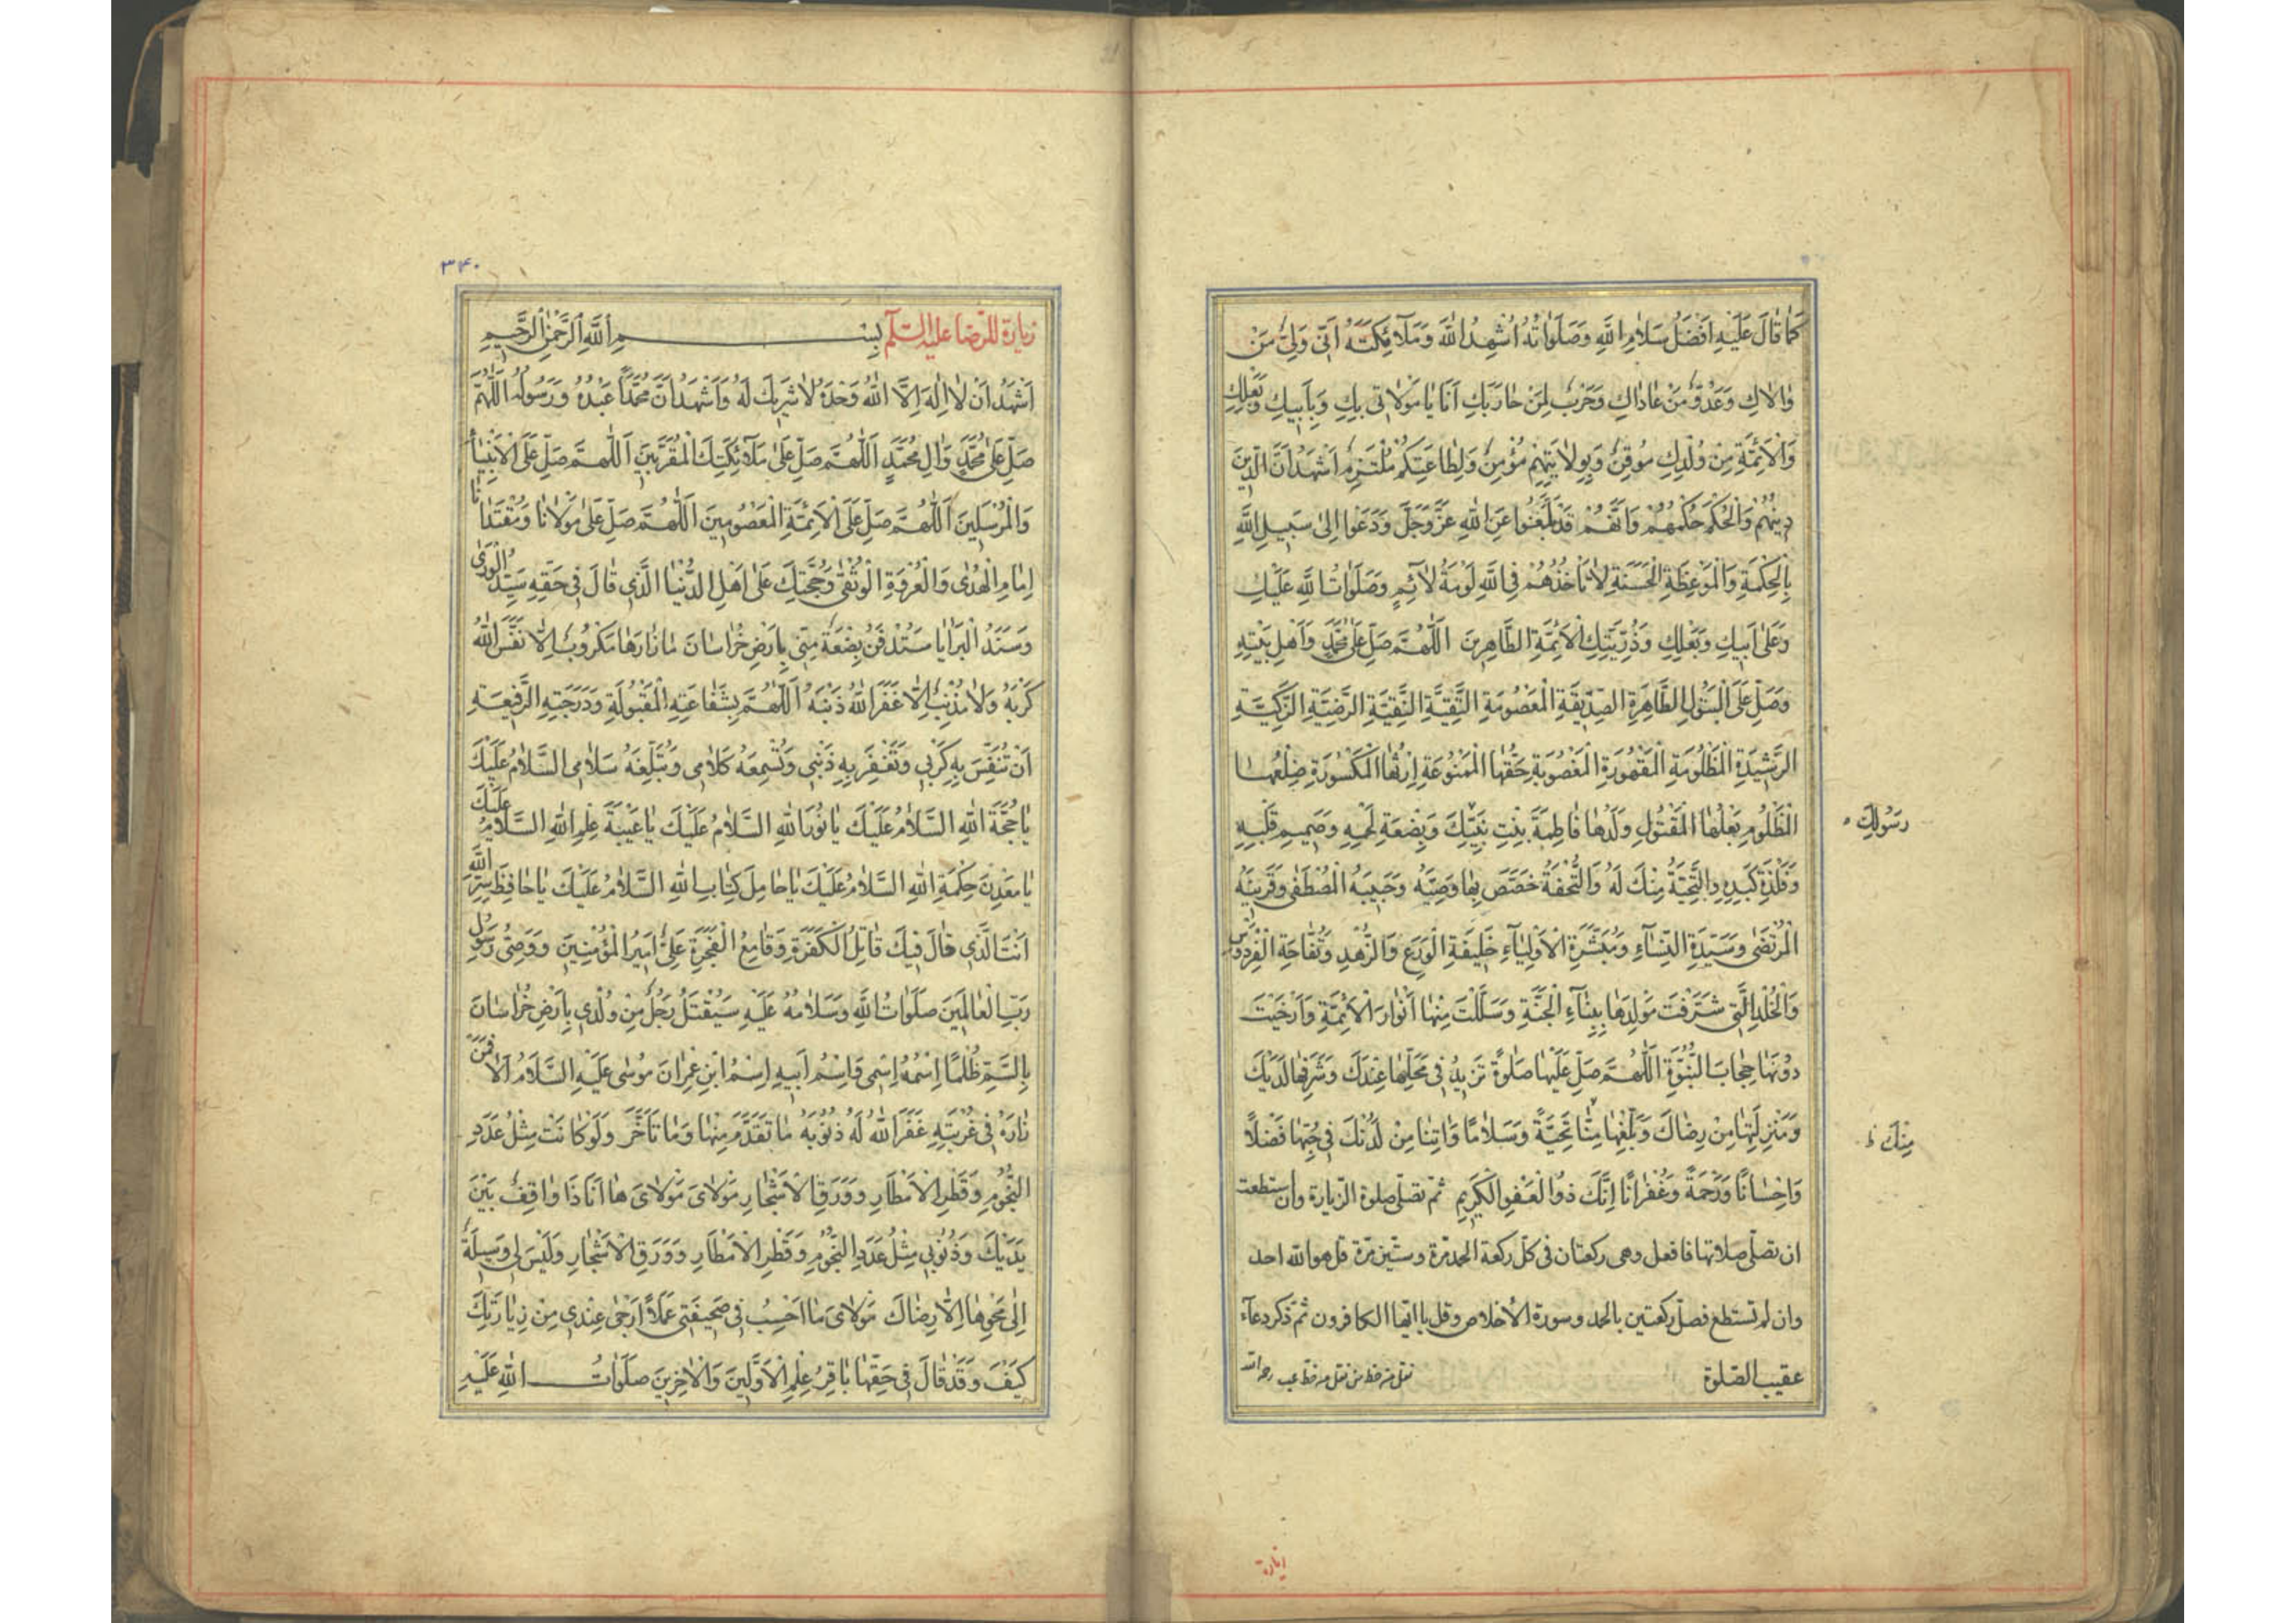 كَمَا قَالَ عَلَيْهِ اَفْضَلُ سَلَامِ اللّٰهِ وَصَلَوَاتُهُ اُشْهِدُ اللّٰهَ وَمَلَآئِكَتَهُ اَنّى وَلِىٌّ مَنْ
وَالَاكِ وَعَدُوٌّ مَنْ عَادَاكِ وَحَرْبٌ لِمَنْ حَارَبَكِ اَنَا يَا مَوْلَاتى بِكِ وَبِاَبيكِ وَبَعْلِكِ
وَالْاَئِمَّةِ مِنْ وُلْدِكِ مُوقِنٌ وَبِوِلَايَتِهِمْ مُؤْمِنٌ وَلِطَاعَتِكُمْ مُلْتَزِمٌ اَشْهَدُ اَنَّ الدّينَ
دينُهُمْ وَالْحُكْمَ حُكْمُهُمْ وَاَنَّهُمْ قَدْ بَلَّغُوا عَنِ اللّٰهِ عَزَّ وَجَلَّ وَدَعَوْا اِلىٰ سَبيلِ اللّٰهِ
بِالْحِكْمَةِ وَالْمَوْعِظَةِ الْحَسَنَةِ لَا تَأْخُذُهُمْ فِى اللّٰهِ لَوْمَةُ لَآئِمٍ وَصَلَوَاتُ اللّٰهِ عَلَيْكِ
وَعَلىٰ اَبيكِ وَبَعْلِكِ وَذُرِّيَّتِكِ الْاَئِمَّةِ الطَّاهِرينَ اَللّٰهُمَّ صَلِّ عَلىٰ مُحَمَّدٍ وَاَهْلِ بَيْتِهِ
وَصَلِّ عَلَى الْبَتُولِ الطَّاهِرَةِ الصِّدّيقَةِ الْمَعْصُومَةِ التَّقِيَّةِ النَّقِيَّةِ الرَّضِيَّةِ الزَّكِيَّةِ
الرَّشيدَةِ الْمَظْلُومَةِ الْمَقْهُورَةِ الْمَغْصُوبَةِ حَقُّهَا الْمَمْنُوعَةِ اِرْثُهَا الْمَكْسُورَةِ ضِلْعُهَا
الْمَظْلُومِ بَعْلُهَا الْمَقْتُولِ وَلَدُهَا فَاطِمَةَ بِنْتِ نَبِيِّكَ وَبِضْعَةِ لَحْمِهِ وَصَميمِ قَلْبِهِ
رَسُولِكَ
وَفِلْذَةِ كَبِدِهِ وَالتَّحِيَّةُ مِنْكَ لَهُ وَالتُّحْفَةُ خَصَّصَ بِهَا وَصِيَّهُ وَحَبيبَهُ الْمُصْطَفىٰ وَقَرينَهُ
الْمُرْتَضىٰ وَسَيِّدَةِ النِّسَآءِ وَمُبَشِّرَةِ الْاَوْلِيَآءِ حَليفَةِ الْوَرَعِ وَالزُّهْدِ وَتُفَّاحَةِ الْفِرْدَوْسِ
وَالْخُلْدِ الَّتى شَرَّفْتَ مَوْلِدَهَا بِنِسَآءِ الْجَنَّةِ وَسَلَلْتَ مِنْهَا اَنْوَارَ الْاَئِمَّةِ وَاَرْخَيْتَ
دُونَهَا حِجَابَ النُّبُوَّةِ اَللّٰهُمَّ صَلِّ عَلَيْهَا صَلٰوةً تَزيدُ فى مَحَلِّهَا عِنْدَكَ وَشَرَفِهَا لَدَيْكَ
وَمَنْزِلَتِهَا مِنْ رِضَاكَ وَبَلِّغْهَا مِنَّا تَحِيَّةً وَسَلَامًا وَاٰتِنَا مِنْ لَدُنْكَ فى حُبِّهَا فَضْلًا
مِنْكَ
وَاِحْسَانًا وَرَحْمَةً وَغُفْرَانًا اِنَّكَ ذُو الْعَفْوِ الْكَريمِ ثمّ تصلّى صلوة الزّيارة وان استطعت
ان تصلّى صلاتها فافعل وهى ركعتان فى كلّ ركعة الحمد مرّة وستّين مرّة قل هو الله احد
وان لم تستطع فصلّ ركعتين بالحمد وسورة الاخلاص وقل يا ايّها الكافرون ثمّ ذكر دعآء
عقيب الصّلوة
۳۴۰
زيارة للرّضا عليه السّلم بِسْمِ اللّٰهِ الرَّحْمٰنِ الرَّحيمِ
اَشْهَدُ اَنْ لَا اِلٰهَ اِلَّا اللّٰهُ وَحْدَهُ لَا شَريكَ لَهُ وَاَشْهَدُ اَنَّ مُحَمَّدًا عَبْدُهُ وَرَسُولُهُ اَللّٰهُمَّ
صَلِّ عَلىٰ مُحَمَّدٍ وَاٰلِ مُحَمَّدٍ اَللّٰهُمَّ صَلِّ عَلىٰ مَلَآئِكَتِكَ الْمُقَرَّبينَ اَللّٰهُمَّ صَلِّ عَلَى الْاَنْبِيَآءِ
وَالْمُرْسَلينَ اَللّٰهُمَّ صَلِّ عَلَى الْاَئِمَّةِ الْمَعْصُومينَ اَللّٰهُمَّ صَلِّ عَلىٰ مَوْلَانَا وَمُقْتَدَانَا
اِمَامِ الْهُدىٰ وَالْعُرْوَةِ الْوُثْقىٰ وَحُجَّتِكَ عَلىٰ اَهْلِ الدُّنْيَا الَّذى قَالَ فى حَقِّهِ سَيِّدُ الْوَرىٰ
وَسَنَدُ الْبَرَايَا سَتُدْفَنُ بِضْعَةٌ مِنّى بِاَرْضِ خُرَاسَانَ مَا زَارَهَا مَكْرُوبٌ اِلَّا نَفَّسَ اللّٰهُ
كَرْبَهُ وَلَا مُذْنِبٌ اِلَّا غَفَرَ اللّٰهُ ذَنْبَهُ اَللّٰهُمَّ بِشَفَاعَتِهِ الْمَقْبُولَةِ وَدَرَجَتِهِ الرَّفيعَةِ
اَنْ تُنَفِّسَ بِهِ كَرْبى وَتَغْفِرَ بِهِ ذَنْبى وَتُسْمِعَهُ كَلَامى وَتُبَلِّغَهُ سَلَامى اَلسَّلَامُ عَلَيْكَ
يَا حُجَّةَ اللّٰهِ اَلسَّلَامُ عَلَيْكَ يَا نُورَ اللّٰهِ اَلسَّلَامُ عَلَيْكَ يَا عَيْبَةَ عِلْمِ اللّٰهِ اَلسَّلَامُ عَلَيْكَ
يَا مَعْدِنَ حِكْمَةِ اللّٰهِ اَلسَّلَامُ عَلَيْكَ يَا حَامِلَ كِتَابِ اللّٰهِ اَلسَّلَامُ عَلَيْكَ يَا حَافِظَ سِرِّ اللّٰهِ
اَنْتَ الَّذى قَالَ فيكَ قَاتِلُ الْكَفَرَةِ وَقَامِعُ الْفَجَرَةِ عَلِىٌّ اَميرُ الْمُؤْمِنينَ وَوَصِىُّ رَسُولِ
رَبِّ الْعَالَمينَ صَلَوَاتُ اللّٰهِ وَسَلَامُهُ عَلَيْهِ سَيُقْتَلُ رَجُلٌ مِنْ وُلْدى بِاَرْضِ خُرَاسَانَ
بِالسَّمِّ ظُلْمًا اِسْمُهُ اِسْمى وَاسْمُ اَبيهِ اِسْمُ ابْنِ عِمْرَانَ مُوسىٰ عَلَيْهِ السَّلَامُ اَلَا فَمَنْ
زَارَهُ فى غُرْبَتِهِ غَفَرَ اللّٰهُ لَهُ ذُنُوبَهُ مَا تَقَدَّمَ مِنْهَا وَمَا تَاَخَّرَ وَلَوْ كَانَتْ مِثْلَ عَدَدِ
النُّجُومِ وَقَطْرِ الْاَمْطَارِ وَوَرَقِ الْاَشْجَارِ مَوْلَاىَ مَوْلَاىَ هَا اَنَا ذَا وَاقِفٌ بَيْنَ
يَدَيْكَ وَذُنُوبى مِثْلُ عَدَدِ النُّجُومِ وَقَطْرِ الْاَمْطَارِ وَوَرَقِ الْاَشْجَارِ وَلَيْسَ لى وَسيلَةٌ
اِلىٰ مَحْوِهَا اِلَّا رِضَاكَ مَوْلَاىَ مَا اَحْسِبُ فى صَحيفَتى عَمَلًا اَرْجىٰ عِنْدى مِنْ زِيَارَتِكَ
كَيْفَ وَقَدْ قَالَ فى حَقِّهَا بَاقِرُ عِلْمِ الْاَوَّلينَ وَالْاٰخِرينَ صَلَوَاتُ اللّٰهِ عَلَيْهِ